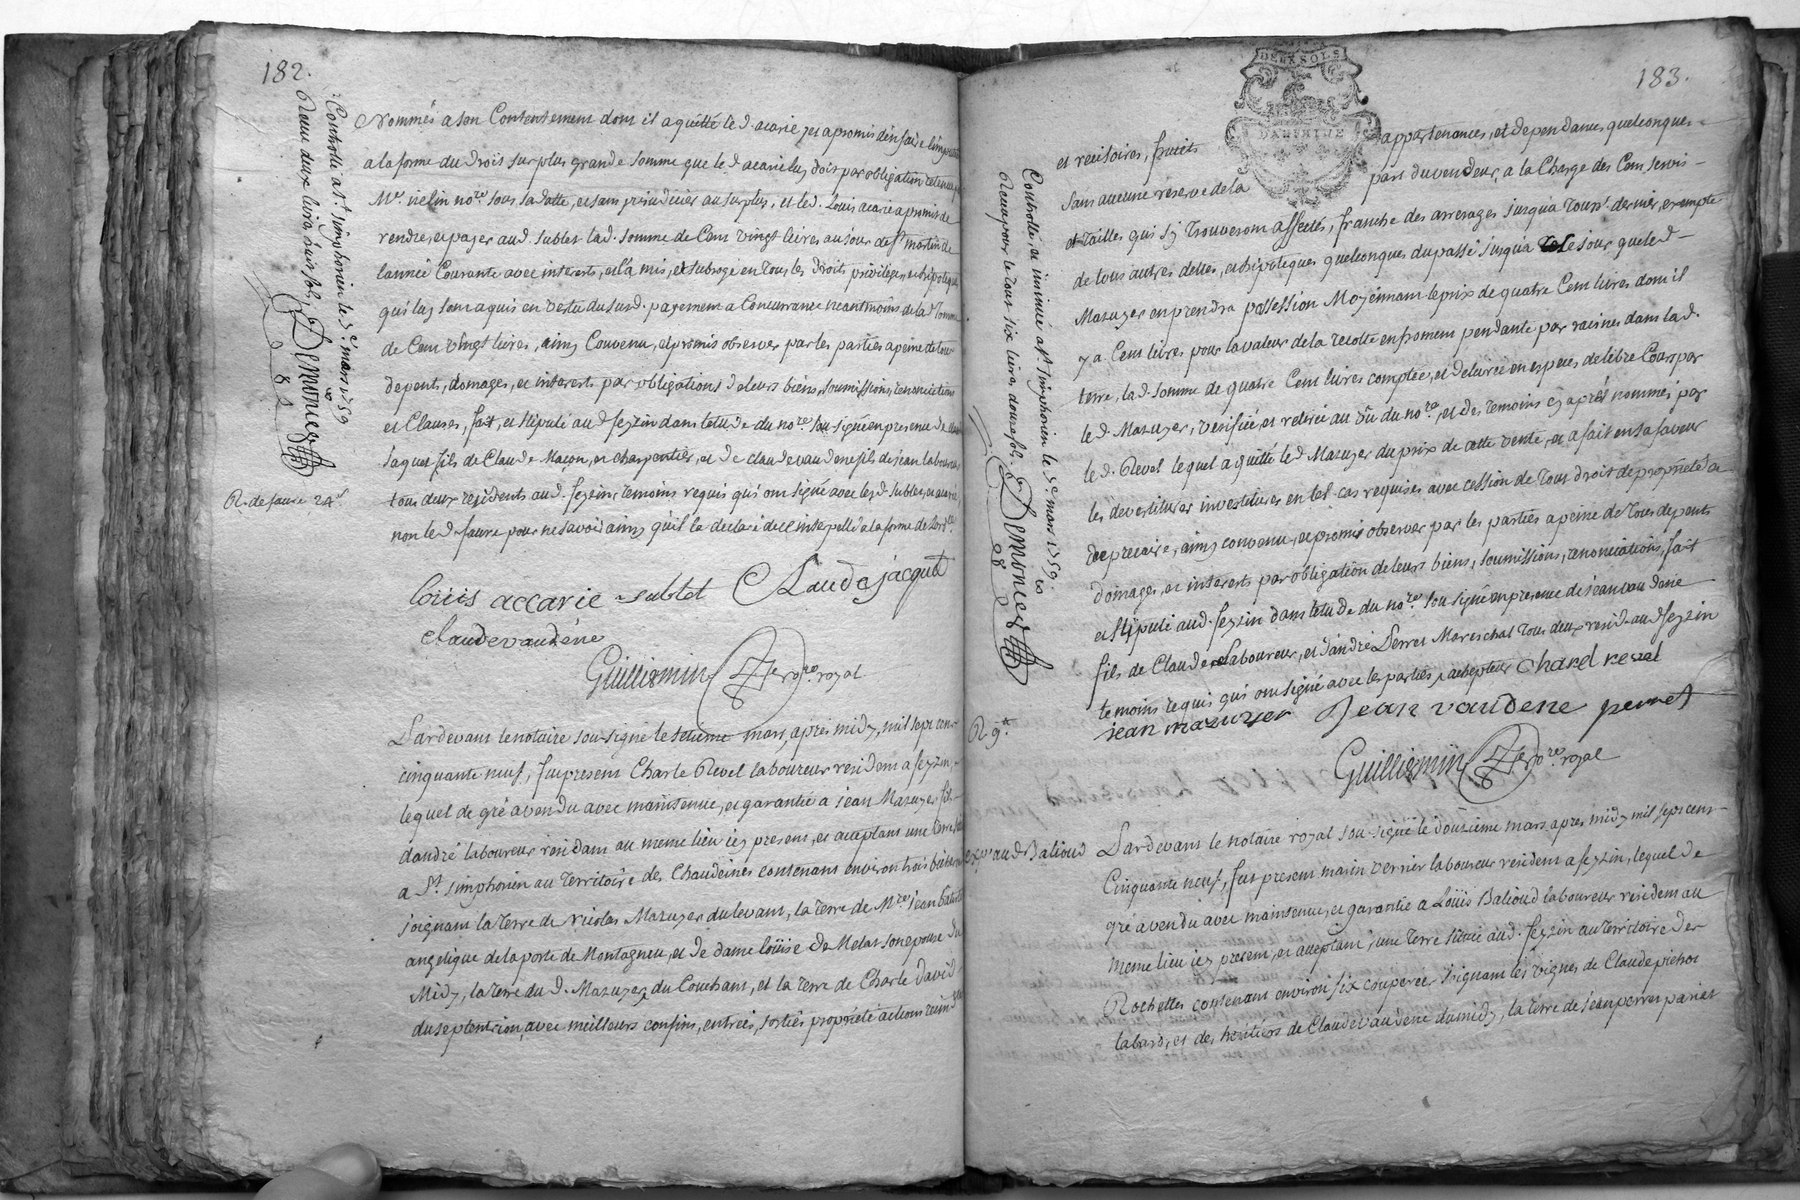 182.
Controllé a St. simphorien le 5e. mars 1759
Reçu deux livres huit sols
Demonier
R. de faure 24s
Nommés a son Contentement dont il a quitté le d. acarie et a promis
a la forme du droit sur plus grande somme que le d. acarie luy doit par obligation
Me. no.re sous sa datte, et sans préjudicier au surplus, et led. Louis acarie a promis de
rendre, et payer aud. sublet lad. somme de Cent vingt livres au jour de St martin de
lannée Courante avec interets, et l'a mis, et subrogé en tous les droits privileges, et hipoteques
qui luy sont aquis en vertu du susd. payement a Concurrance neantmoins de lad. somme
de Cent vingt livres, ainsy Convenu, et promis observer par les parties a peine de tous
depents, domages, et interests par obligations de leurs biens, soumissions, renonciations
et Clauses, fait, et stipulé aud. feyzin dans l'etude du no.re sousigné en presence de Claude
Jaquet fils de Claude Maçon, et charpentier, et de claude vaudene fils de jean laboureur
tous deux residents aud. feyzin, temoins requis qui ont signé avec lesd. sublet, et acarie
non led. faure pour ne savoir ainsy qu'il la declaré de ce interpellé a la forme de lord.ce
louis accarie sublet Claude jacquet
claude vaudéne
Guilliermin no.re royal
Pardevant le notaire sousigné le setieme mars, apres midy, mil sept cent
cinquante neuf, fut present Charle Revel laboureur resident a feyzin,
lequel de gré a vendu avec maintenue, et garantie a jean Mazuyer fils
d'andré laboureur residant au meme lieu icy present, et aceptant une terre
a St. simphorien au territoire des Chaudeines contenant environ trois bicherées
joignant la terre de nicolas Mazuyer du levant, la terre de Mre jean
angelique de la porte de Montagneu, et de dame Loüise de Melat son epouse du
Midy, la terre du d. Mazuyer du Couchant, et la terre de Charle David
du septentrion, avec meilleurs confins, entrées, sorties propriété actions
183.
DEUX SOLS
DAUPHINE
Controllé, et insinué a St. simphorien le 5e. mars 1759
Reçu pour le tout six livres douze sols
Demonier
R. 9s.
et resisoires, fruits appartenances, et dependances quelconques
sans aucune reserve de la part du vendeur, a la Charge des Cens servis
et Tailles qui s'y trouveront affectés, franche des arrerages jusqu'a Touss.t dernier, exempte
de tous autres dettes, et hipoteques quelconques du passé jusqu'a ce jour que led.
Mazuyer en prendra possession Moyennant le prix de quatre Cent livres dont il
y a Cent livres pour la valeur de la recolte en froment pendante par racines dans lad.
terre, lad. somme de quatre Cent livres comptée, et delivrée en especes de libre Cours par
le d. Mazuyer, verifiée, et retirée au vû du no.re, et des temoins cy aprés nommés par
le d. Revel lequel a quitté led. Mazuyer du prix de cette vente, et a fait en sa faveur
les devestitures investitures en tel cas requises avec cession de tous droit de propriété a
de precaire, ainsy convenu, et promis observer par les parties a peine de tous depents
domages, et interests par obligation de leurs biens, soumissions, renonciations, fait
et stipulé aud. feyzin dans l'etude du no.re sousigné en presence de jean vaudene
fils de Claude laboureur, et d'andré Perret Mareschal tous deux resid. aud. feyzin
temoins requis qui ont signé avec les parties, charel revel
jean mazuyer Jean vaudene perret
Guilliermin no.re royal
exp. aud. Balioud
Pardevant le notaire royal sousigné le douzieme mars apres midy mil sept cent
Cinquante neuf, fut present marin vernier laboureur resident a feyzin, lequel de
gré a vendu avec maintenue, et garantie a Loüis Balioud laboureur resident au
meme lieu icy present, et aceptant, une terre située aud. feyzin au territoire des
Rochettes contenant environ six couperées joignant les vignes de Claude pichot
labard, et des heritiers de Claude vaudene du midy, la terre de jean perret pariat